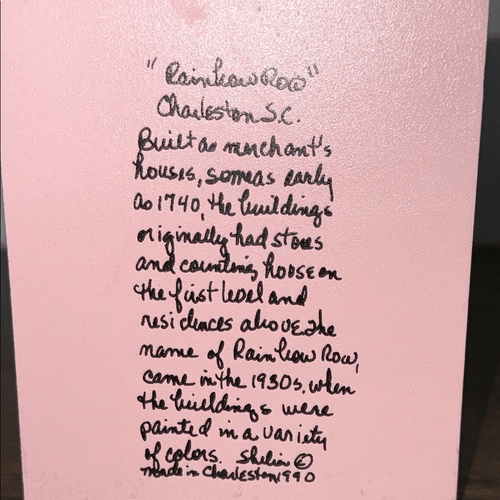 "Rainbow Row"
Charleston S.C.
Built as merchant's
houses, some as early
as 1740, the buildings
originally had stores
and counting house on
the first level and
residences above. The
name of Rainbow Row,
came in the 1930s, when
the buildings were
painted in a variety
of colors. Shelia ©
made in Charleston 1990